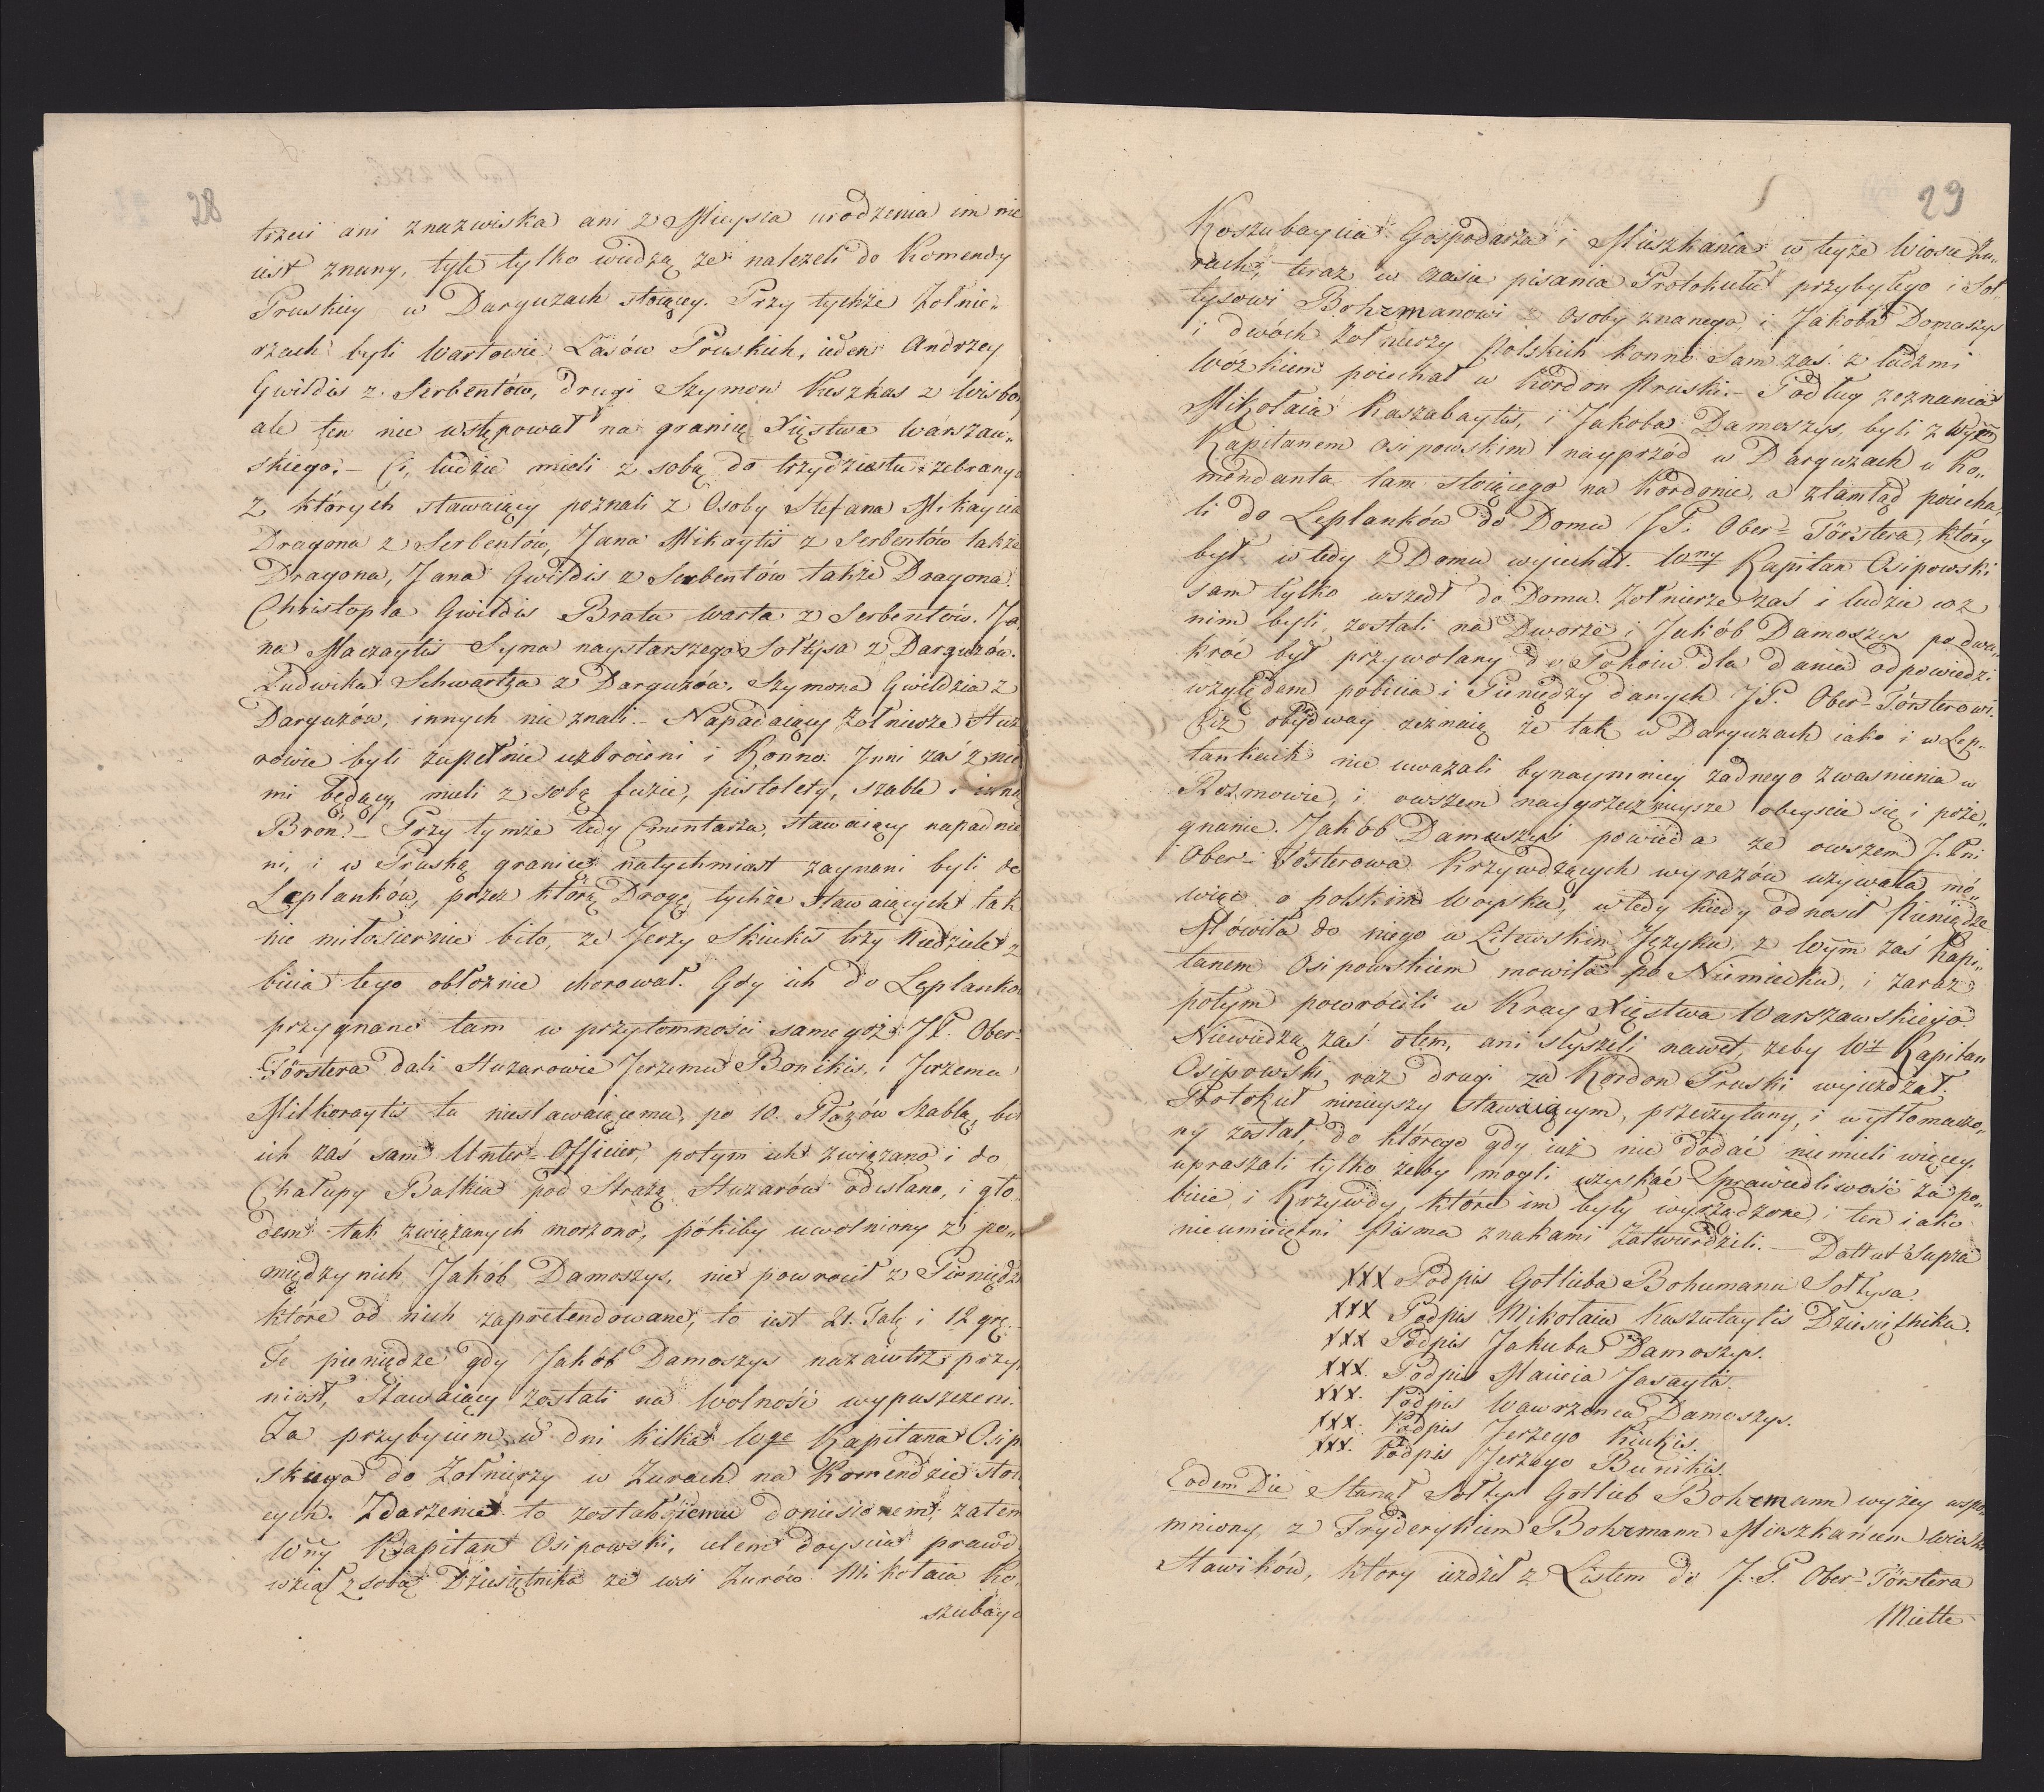 28
trzeci ani znazwiska ani z Mieysca urodzenia im nie
iest znany, tyle tylko wiedzą że należeli do Komendy
Pruskiey w Darguzach stoiącey. Przy tychże Żołnie„
rzach byli Wartowie Lasów Pruskich, ieden Andrzey
Gwildis z Serbentów, drugi Szymon Kuszkas z Wisbo
ale ten nie wstępował na granicę Xięstwa Warszaw„
skiego. – Ci, ludzie mieli z sobą do trzydziestu zebranych
z których stawaiący poznali z Osoby Stefana Mikaycia
Dragona z Serbentów, Jana Mikaytis z Serbentów także
Dragona, Jana Gwildis z Serbentów także Dragona.
Christopla Gwildis Brata warta z Serbentów. Ja„
na Maczaytis Syna naystarszego Sołtysa z Darguzów.
Ludwika Schwartza z Darguzów, Szymona Gwildzia z
Darguzów, innych nie znali. – Napadaiący Żołnierze Huza
rowie byli zupełnie uzbroieni i Konno. Jnni zaś z nie
mi będący, mieli z sobą fuzie, pistolety, szable i inną
Broń. – Przy tymże tedy Cmentarzu, stawaiący napadnie
ni, i w Pruską granicę natychmiast zagnani byli do
Leplanków, przez którą Drogę, tychże stawaiących tak
nie miłosiernie bito, że Jerzy Skiukis trzy Niedziele z
bicia tego obłoznie chorował. Gdy ich do Leplanko
przygnano tam w przytomności samegoż JP. Ober-
Törstera dali Huzarowie Jerzemu Bonikis, i Jerzemu
Milkoraytis tu niestawaiącemu, po 10. Płazów szablą, bił
ich zaś sam Unter-Officier, potym ich związano i do
Chałupy Balkia pod Strażą Huzarów odesłano, i gło
dem tak związanych morzono, pókiby uwolniony z po„
między nich Jakób Damoszys, nie powrocił z Pieniędz
które od nich zapretendowane, to iest 21. Tal; i 12 grz.
Te pieniądze gdy Jakób Damoszys nazaiutrz przy
niosł, Stawaiący zostali na Wolność wypuszczeni.
Za przybyciem w dni kilka Wgo Kapitana Osip
skiego do Żołnierzy w Żurach na Komendzie stoi
cych. Zdarzenie to zostało iemu doniesionem, zatem
Wny Kapitan Osipowski, celem doyscia prawd
wziął z sobą Dziesiętnika ze wsi Żurów Mikołaia Ko„
szubayc
29
Koszubaycia Gospodarza i Mieszkańca w teyże Wiosce Żu„
rach, teraz w czasie pisania Protokułu przybyłego i Soł„
tysowi Bohrmanowi z osoby znanego, i Jakóba Domaszys
i dwóch Żołnierzy Polskich konno sam zaś z ludźmi
Wózkiem poiechał w Kordon Pruski. – Podług zeznania
Mikołaia Kaszabaytis, i Jakoba Damoszys, byli z Wym
Kapitanem Osipowskim nayprzód w Darguzach u Ko„
mendanta tam stoiącego na Kordonie, a ztamtąd poiecha„
li do Leplanków do Domu JP. Ober-Törstera, który
był wtedy z Domu wyiechał. Wny Kapitan Osipowski
sam tylko wszedł do Domu. Żołnierze zaś i ludzie co z
nim byli, zostali na Dworze i Jakób Damoszys po dwa„
króć był przywołany do Pokoiu dla dania odpowiedzi
względem pobicia i Pieniędzy danych JP. Ober-Törsterowi.
Ciż obydway zeznaią że tak w Darguzach iako i w Lep„
lankach nie uważali bynaymniey żadnego zwasnienia w
Rozmowie, i owszem naygrzecznieysze obeyscie się i poże„
gnanie. Jakób Damuszys powieda że owszem J. Pni
Ober-Törsterowa Krzywdzących wyrazów używała mó„
wiąc o polskim Woysku, wtedy kiedy odnosił Pieniądze
Mówiła do niego w Litewskim Języku, z Wym zaś Kapi„
tanem Osipowskiem mowiła po Niemiecku, i zaraz
potym powrócili w Kray Xięstwa Warszawskiego.
Niewiedzą zaś otem, ani słyszeli nawet, żeby Wy Kapitan
Osipowski raz drugi za Kordon Pruski wyieżdżał.
Protokuł ninieyszy stawaiącym, przeczytany, i wytłomaczo„
ny został, do którego gdy iuż nic dodać niemieli więcey
upraszali tylko żeby mogli uzyskać Sprawiedliwość za po„
bicie i Krzywdy, które im były wyrządzone, i ten iako
nieumieiętni Pisma znakami zatwierdzili. – Dattut Supra
XXX Podpis Gotlieba Bohrmann Sołtysa.
XXX Podpis Mikołaia Kaszubaytis Dziesiętnika.
XXX Podpis Jakuba Damoszys.
XXX. Podpis Macieia Jasaytis.
XXX. Podpis Wawrzenca Damoszys.
XXX. Podpis Jerzego Kiukis.
XXX. Podpis Jerzego Bunikis.
Eodem Die Stanął Sołtys Gottlieb Bohrmann wyżey wspo„
mniony, z Fryderykiem Bohrmann Mieszkańcem Wioski
Stawików, ktory ieździł z Listem do J. P. Ober-Törstera
Miette